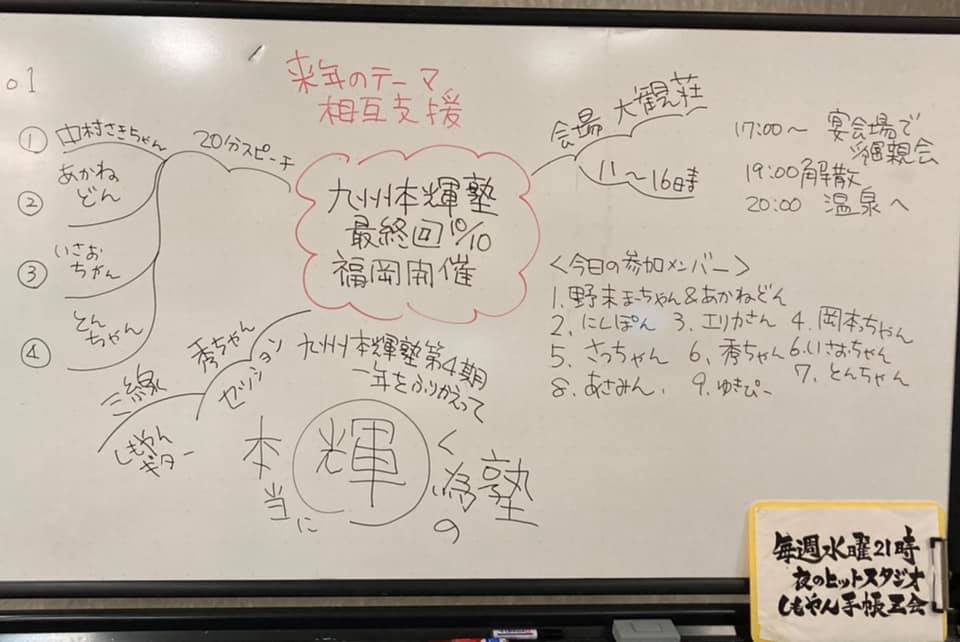 01
来年のテーマ
相互支援
20分スピーチ
① 中村さきちゃん
② あかね
どん
③ いさお
ちゃん
④ とん
ちゃん
九州本輝塾
最終回10/10
福岡開催
会場 大観荘
11〜16時
17:00〜 宴会場で
懇親会
19:00解散
20:00 温泉へ
<今日の参加メンバー>
1.野末まーちゃん&あかねどん
2.にしぽん 3.エリカさん 4.岡本っちゃん
5.さっちゃん 6.秀ちゃん 6.いさおちゃん
7.とんちゃん
8.あさみん. 9.ゆきぴー
秀ちゃん
セッション
三線
しもやん
ギター
九州本輝塾第4期
一年をふりかえって
本当に輝く為の塾
毎週水曜21時
夜のヒットスタジオ
しもやん手帳工会